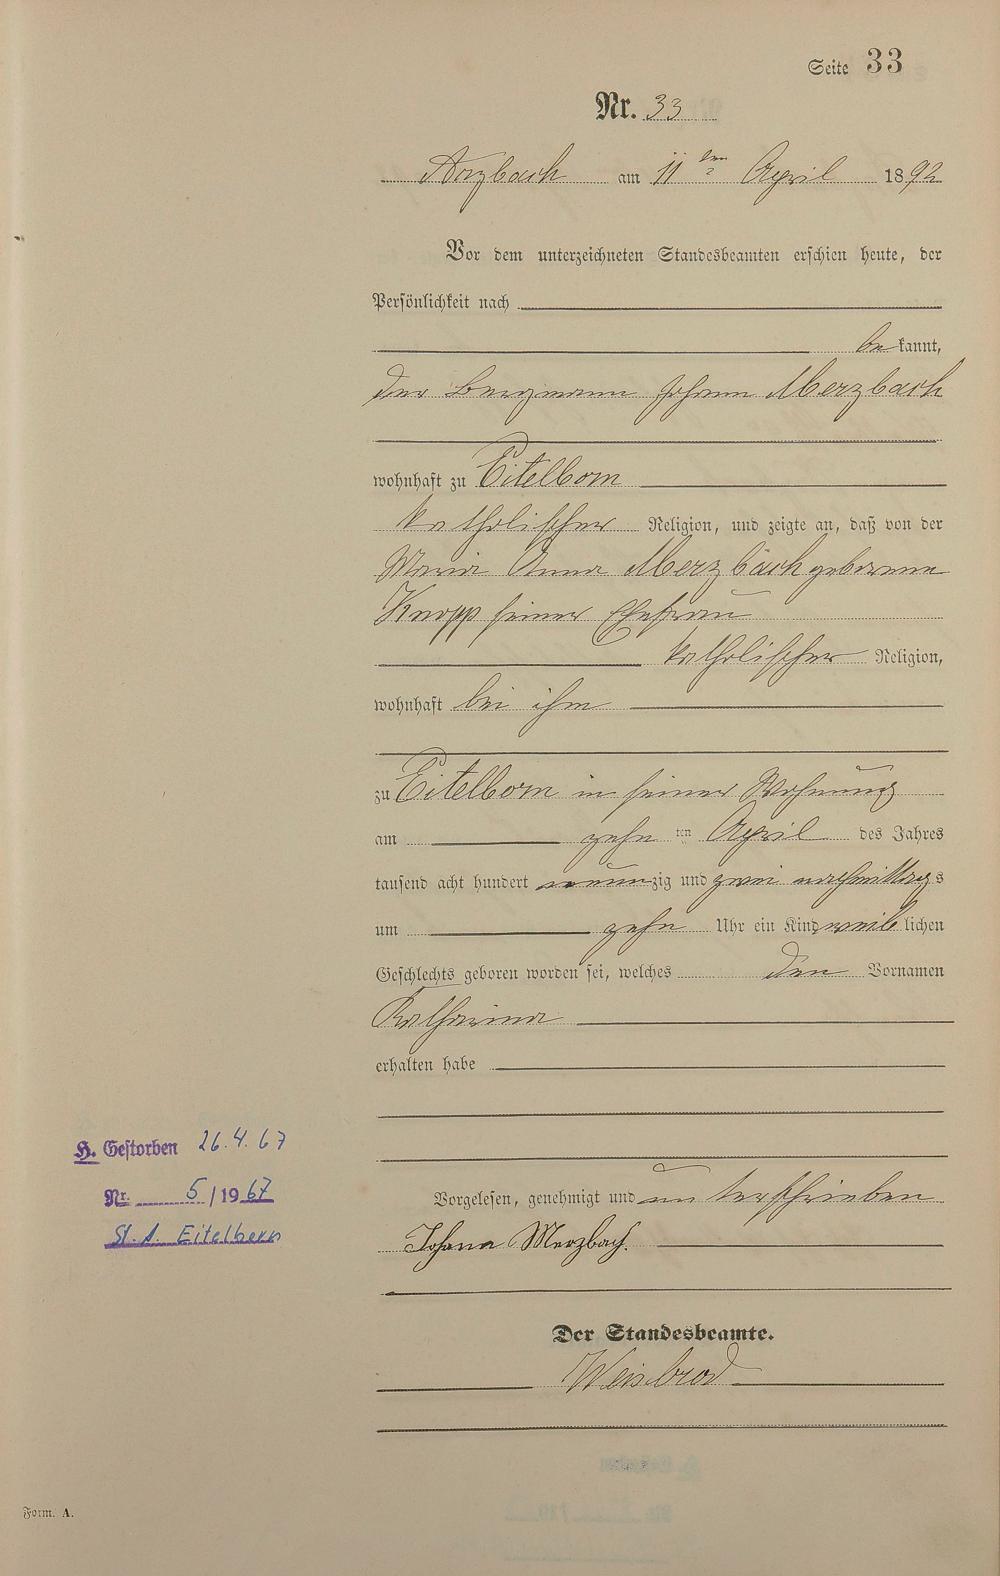 Seite 33
Nr. 33
Arzbach am 11ten April 1892
Vor dem unterzeichneten Standesbeamten erschien heute, der
Persönlichkeit nach
bekannt,
der Bergmann Johann Merzbach
wohnhaft zu Eitelborn
katholischer Religion, und zeigte an, daß von der
Maria Anna Merzbach geborene
Knopp seiner Ehefrau
katholischer Religion,
wohnhaft bei ihm
zu Eitelborn in seiner Wohnung
am zehn ten April des Jahres
tausend acht hundert neunzig und zwei nachmittags
um zehn Uhr ein Kind weiblichen
Geschlechts geboren worden sei, welches den Vornamen
Katharina
erhalten habe
H. Gestorben 26.4.67
Nr. 5/1967
St. A. Eitelborn
Vorgelesen, genehmigt und unterschrieben
Johann Merzbach.
Der Standesbeamte.
Weisbrod
Form. A.